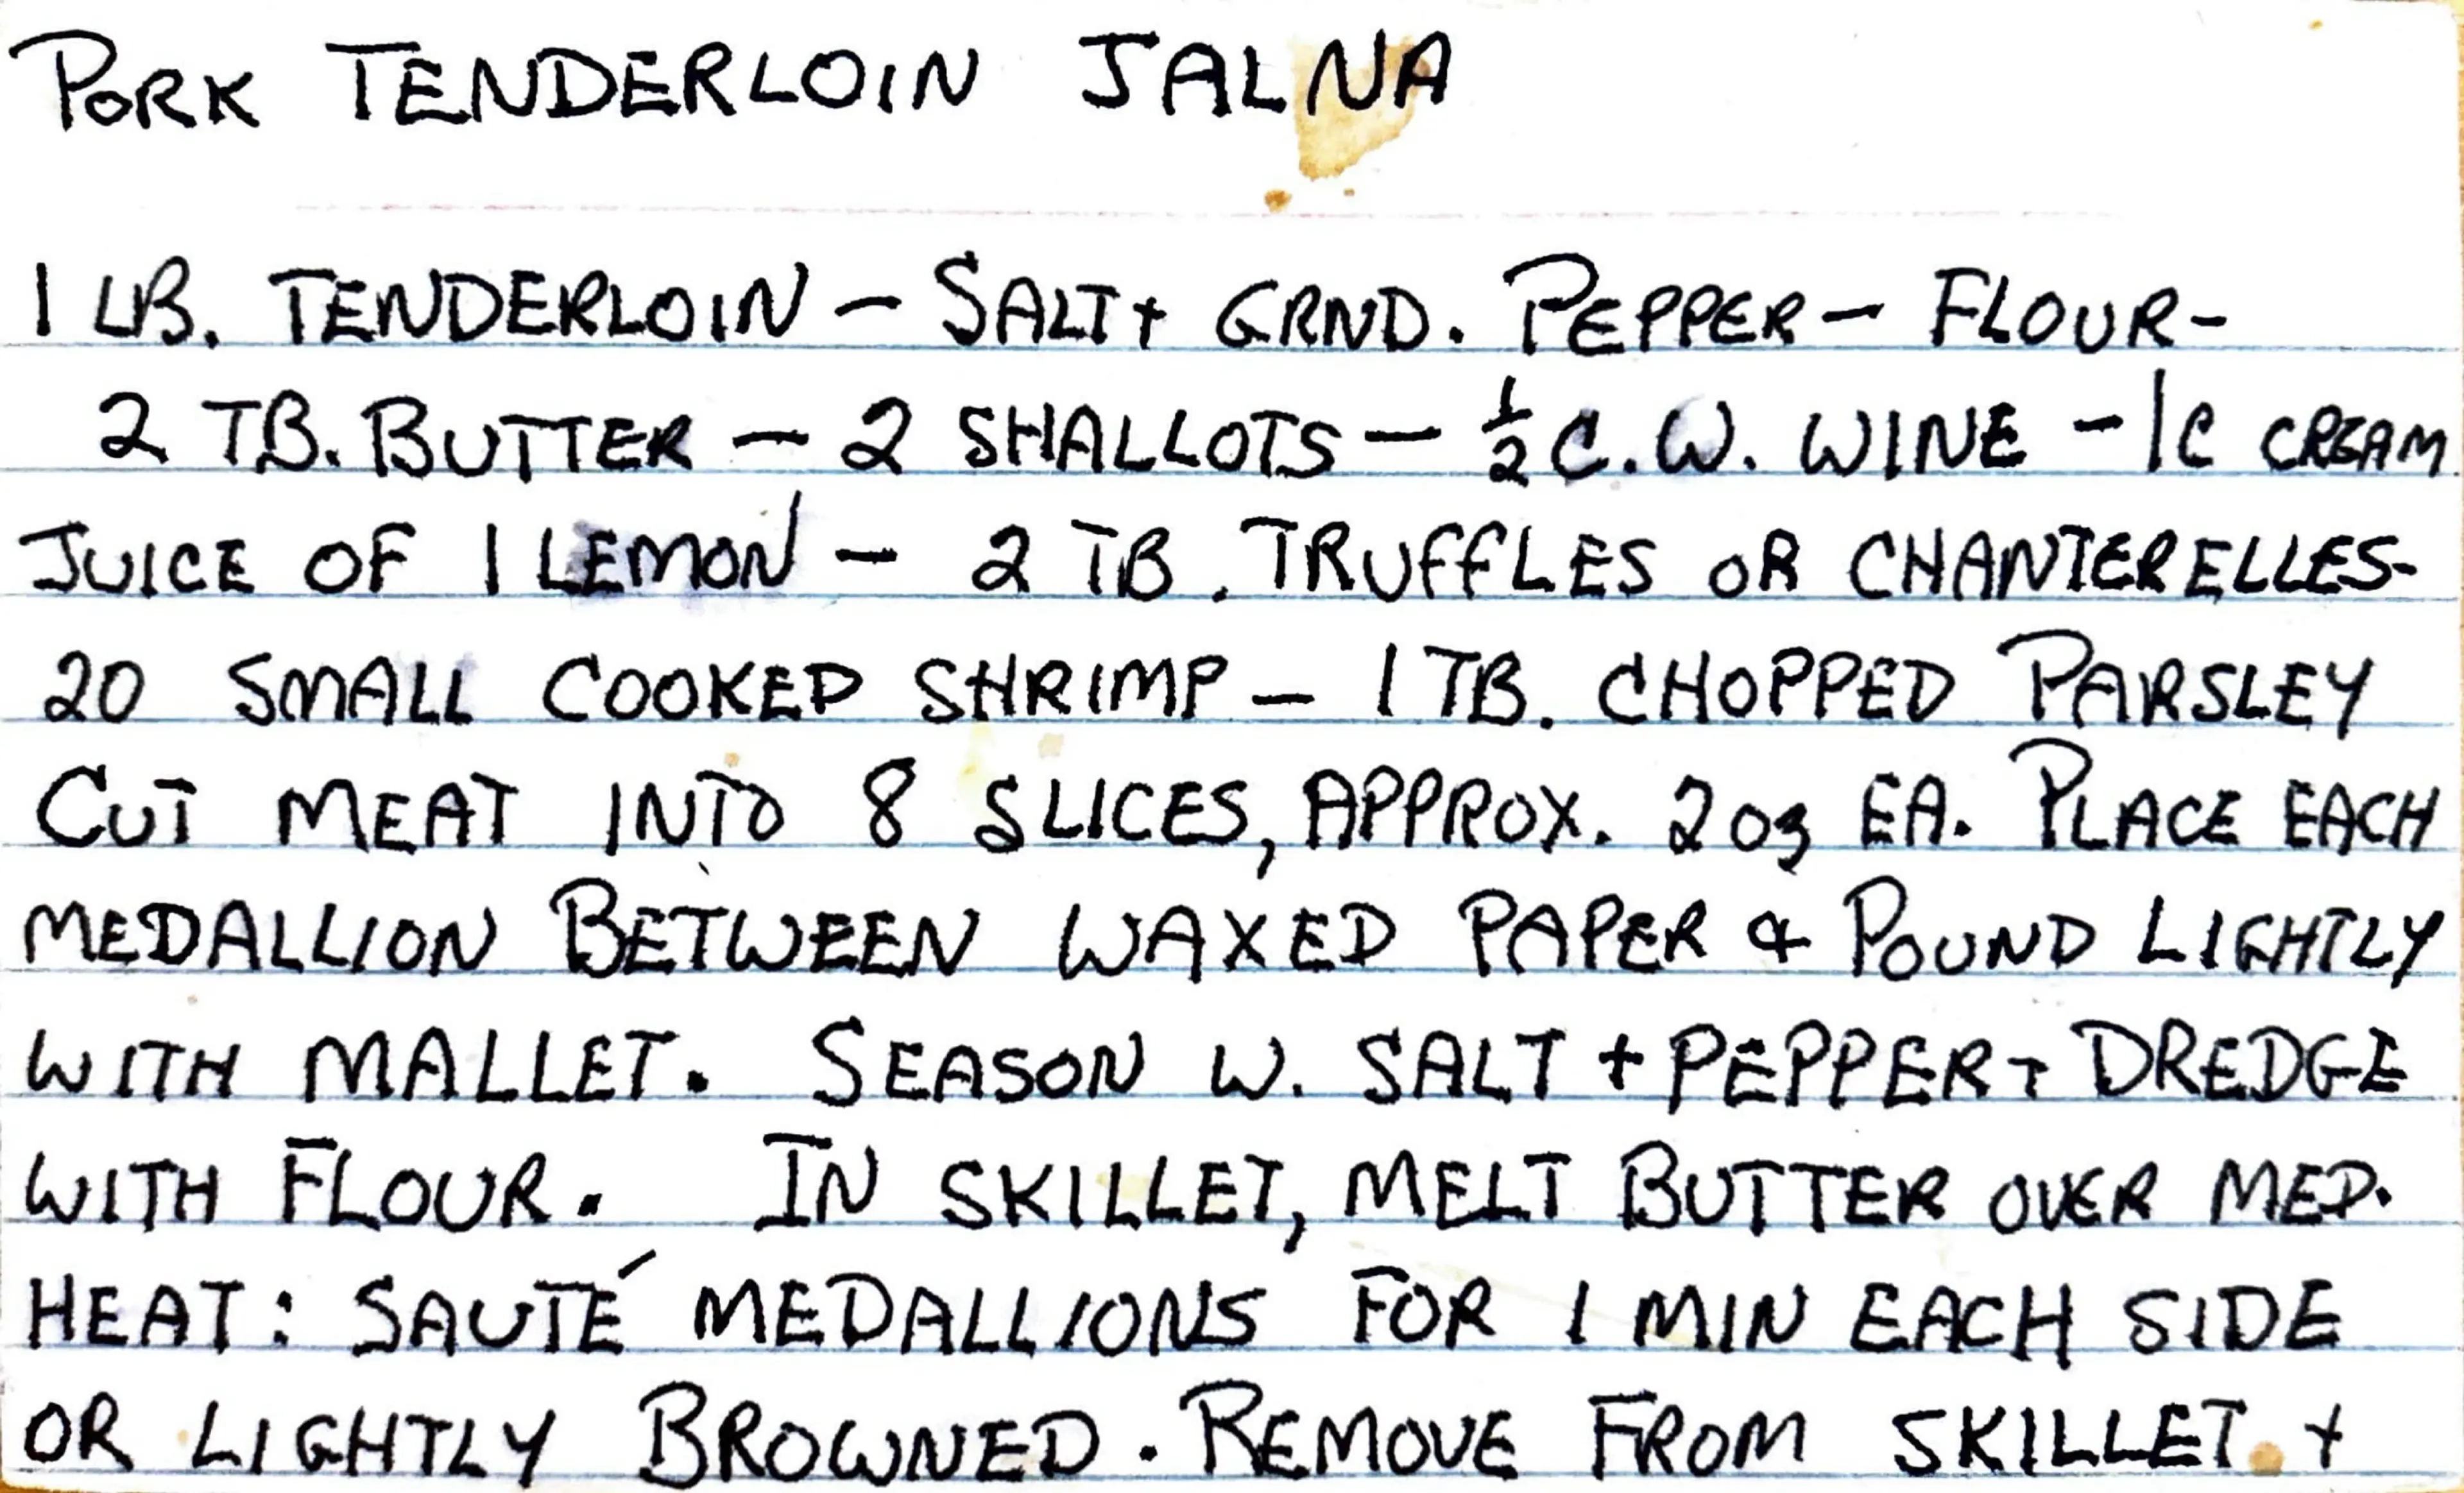 PORK TENDERLOIN JALNA
1 LB. TENDERLOIN - SALT + GRND. PEPPER - FLOUR -
2 TB. BUTTER - 2 SHALLOTS - ½ C. W. WINE - 1C CREAM
JUICE OF 1 LEMON - 2 TB. TRUFFLES OR CHANTERELLES -
20 SMALL COOKED SHRIMP - 1 TB. CHOPPED PARSLEY
CUT MEAT INTO 8 SLICES, APPROX. 2 oz EA. PLACE EACH
MEDALLION BETWEEN WAXED PAPER & POUND LIGHTLY
WITH MALLET. SEASON W. SALT + PEPPER + DREDGE
WITH FLOUR. IN SKILLET, MELT BUTTER OVER MED.
HEAT: SAUTÉ MEDALLIONS FOR 1 MIN EACH SIDE
OR LIGHTLY BROWNED. REMOVE FROM SKILLET +